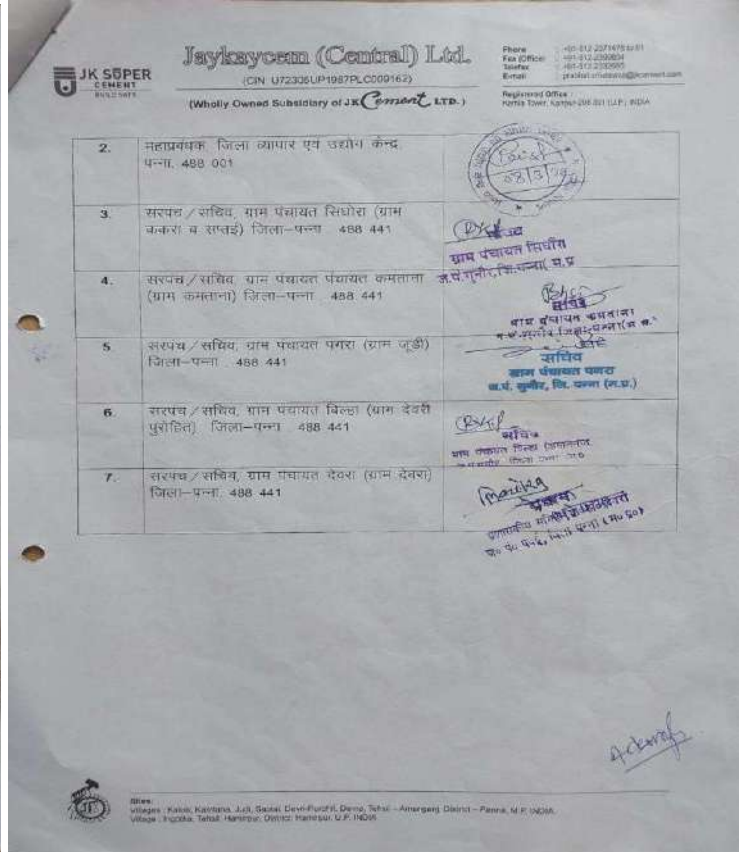 JK SUPER
CEMENT
BUILD SAFE
Jaykaycem (Central) Ltd.
(CIN U72305UP1987PLC009162)
(Wholly Owned Subsidiary of JK Cement LTD.)
Phone
Fax (Office)
Telefax
E-mail
Registered Office :
Kamla Tower, Kanpur-208 001 (U.P.) INDIA
2. महाप्रबंधक, जिला व्यापार एवं उद्योग केन्द्र,
पन्ना. 488 001
3. सरपंच/सचिव, ग्राम पंचायत सिघोरा (ग्राम
ककरा व सप्तई) जिला–पन्ना 488 441
ग्राम पंचायत सिघौरा
ज.पं.गुनौर, जि.पन्ना( म.प्र
4. सरपंच/सचिव, ग्राम पंचायत पंचायत कमताना
(ग्राम कमताना) जिला–पन्ना. 488 441
सचिव
ग्राम पंचायत कमताना
5. सरपंच/सचिव, ग्राम पंचायत पगरा (ग्राम जूडी)
जिला–पन्ना . 488 441
सचिव
ग्राम पंचायत पगरा
ज.पं. गुनौर, जि. पन्ना (म.प्र.)
6. सरपंच/सचिव, ग्राम पंचायत बिल्हा (ग्राम देवरी
पुरोहित) जिला–पन्ना 488 441
सचिव
7. सरपंच/सचिव, ग्राम पंचायत देवरा (ग्राम देवरा)
जिला–पन्ना. 488 441
Sites:
Villages : Kakra, Kamtana, Judi, Saptai, Devri-Purohit, Devra, Tehsil - Amanganj, District - Panna, M.P. INDIA.
Village : Ingotha, Tehsil: Hamirpur, District: Hamirpur, U.P. INDIA